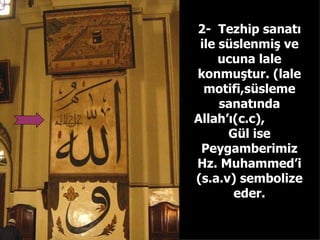 2- Tezhip sanatı
ile süslenmiş ve
ucuna lale
konmuştur. (lale
motifi,süsleme
sanatında
Allah’ı(c.c),
Gül ise
Peygamberimiz
Hz. Muhammed’i
(s.a.v) sembolize
eder.
الله